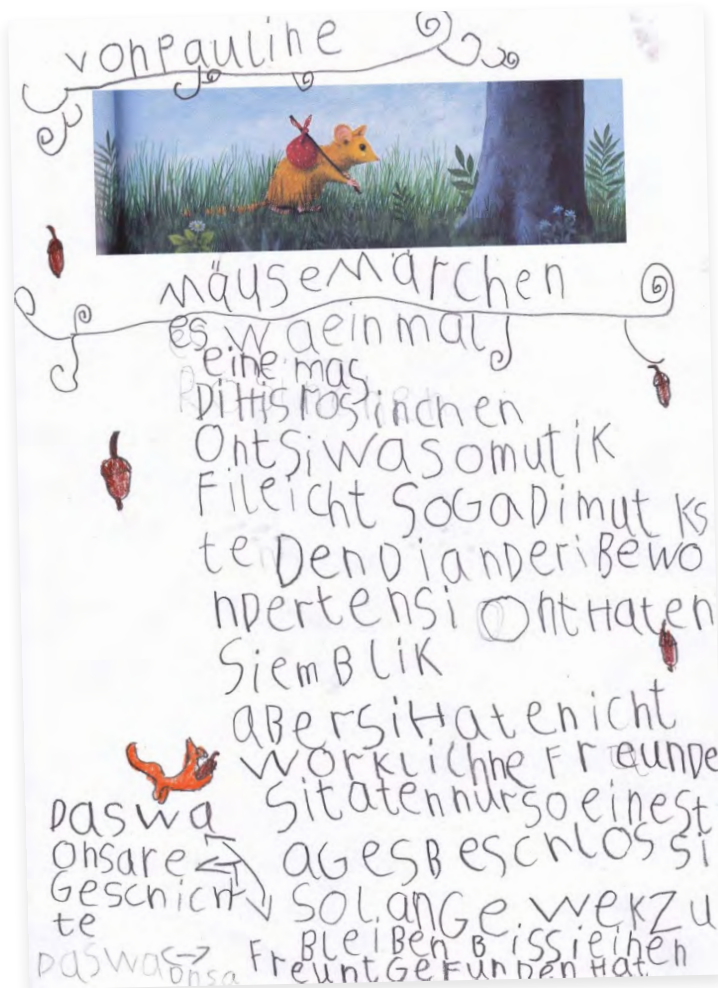 vonpauline
mäusemärchen
es waeinmal
eine mas
Dihis rosinchen
Ontsiwasomutik
Fileicht SoGaDimut ks
te DenDianDeriBewo
nDertensi OntHaten
SiemBlik
aBersiHatenicht
WörkLichhe FreunDe
Sitatennurso einest
aGesBeschlossi
soLanGe.wekzu
BLeiBen Bissieinen
FreuntGeFunDen Hat
Daswa
Onsare
Geschich
te
Daswa
onsa